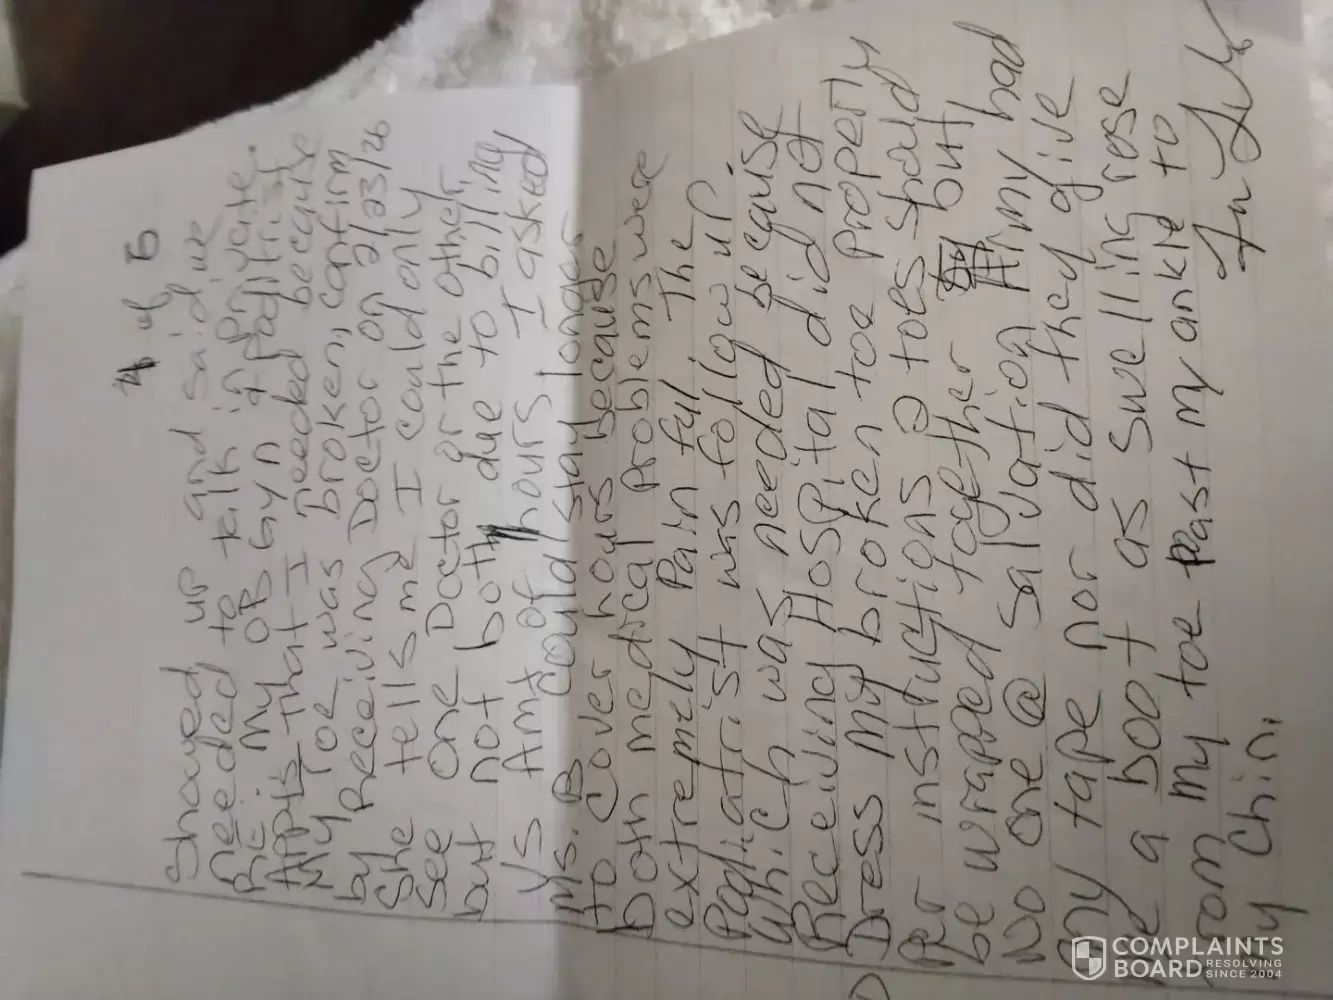 4 of 5
Showed up and said we
needed to talk in private.
RE: My OB Gyn + podiatrist
Appts that I needed because
My Toe was broken, confirm
by Receiving Doctor on 2/23/26
She tells me I could only
see one Doctor or the other
but not both due to billing
Vs Amt of hours. I asked
Ms. B could stay longer
to cover hours because
Both medical problems were
extremely Pain ful The
Podiatrist was follow up
which was needed because
Receiving Hospital did not
Dress My broken toe properly
Per instructions 2 toes should
be wrapped together but
No one @ Salvation Army had
any tape nor did they give
me a boot as swelling rose
from my toe past my ankle to
my Chin.
COMPLAINTS
BOARD RESOLVING
SINCE 2004